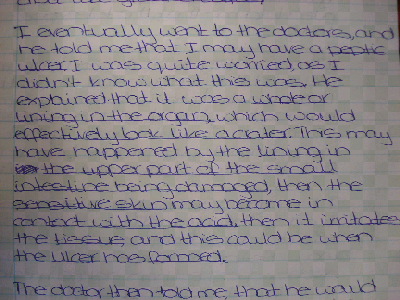 I eventually went to the doctors, and
he told me that I may have a peptic
ulcer. I was quite worried, as I
didn't know what this was. He
explained that it was a whole or
lining in the organ, which would
effectively look like a crater. This may
have happened by the lining in
the upper part of the small
intestine being damaged, then the
sensitive skin may become in
contact with the acid, then it irritates
the tissue, and this could be when
the Ulcer has formed.
The doctor then told me, that he would